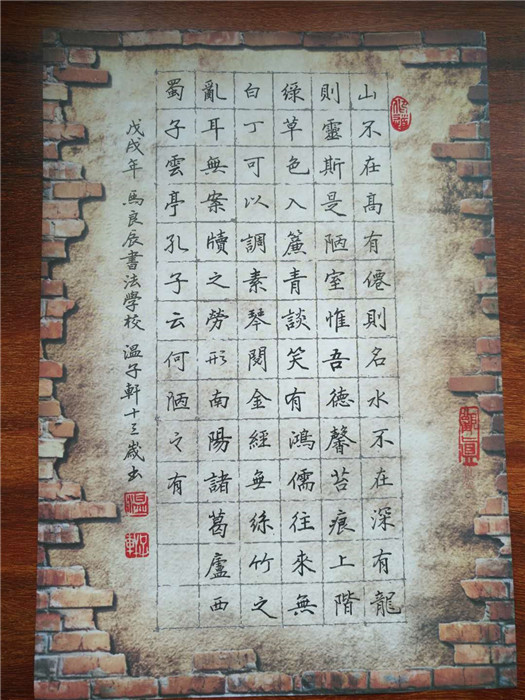 山不在高有僊則名水不在深有龍
則靈斯是陋室惟吾德馨苔痕上階
綠草色入簾青談笑有鴻儒往來無
白丁可以調素琴閱金經無絲竹之
亂耳無案牘之勞形南陽諸葛廬西
蜀子雲亭孔子云何陋之有
戊戌年 馬良辰書法學校 溫子軒十三歲书